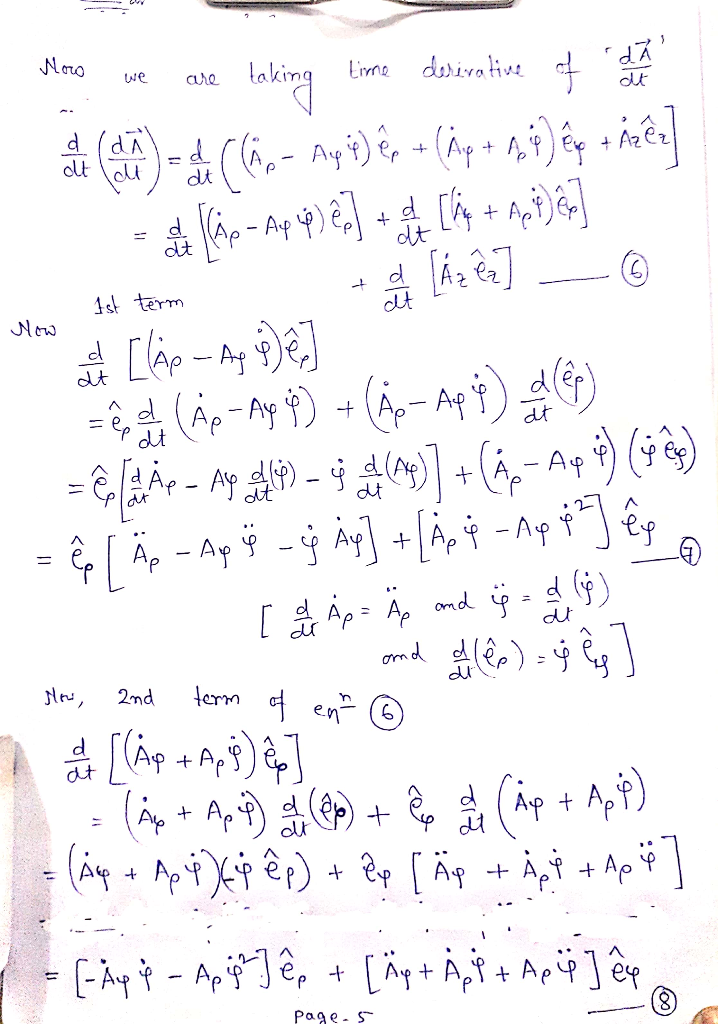 Now we are taking time derivative of 'dA⃗/dt'
d/dt (dA⃗/dt) = d/dt [(Ȧρ - Aφ φ̇) êρ + (Ȧφ + Aρ φ̇) êφ + Ȧz êz]
= d/dt [(Ȧρ - Aφ φ̇) êρ] + d/dt [(Ȧφ + Aρ φ̇) êφ]
+ d/dt [Ȧz êz] — ⑥
Now 1st term
d/dt [(Ȧρ - Aφ φ̇) êρ]
= êρ d/dt (Ȧρ - Aφ φ̇) + (Ȧρ - Aφ φ̇) d/dt (êρ)
= êρ [d/dt Ȧρ - Aφ d/dt (φ̇) - φ̇ d/dt (Aφ)] + (Ȧρ - Aφ φ̇) (φ̇ êφ)
= êρ [Äρ - Aφ φ̈ - φ̇ Ȧφ] + [Ȧρ φ̇ - Aφ φ̇²] êφ — ⑦
[d/dt Ȧρ = Äρ and φ̈ = d/dt (φ̇)
and d/dt (êρ) = φ̇ êφ]
Now, 2nd term of eqⁿ ⑥
d/dt [(Ȧφ + Aρ φ̇) êφ]
= (Ȧφ + Aρ φ̇) d/dt (êφ) + êφ d/dt (Ȧφ + Aρ φ̇)
= (Ȧφ + Aρ φ̇)(-φ̇ êρ) + êφ [Äφ + Ȧρ φ̇ + Aρ φ̈]
= [-Ȧφ φ̇ - Aρ φ̇²] êρ + [Äφ + Ȧρ φ̇ + Aρ φ̈] êφ — ⑧
Page-5